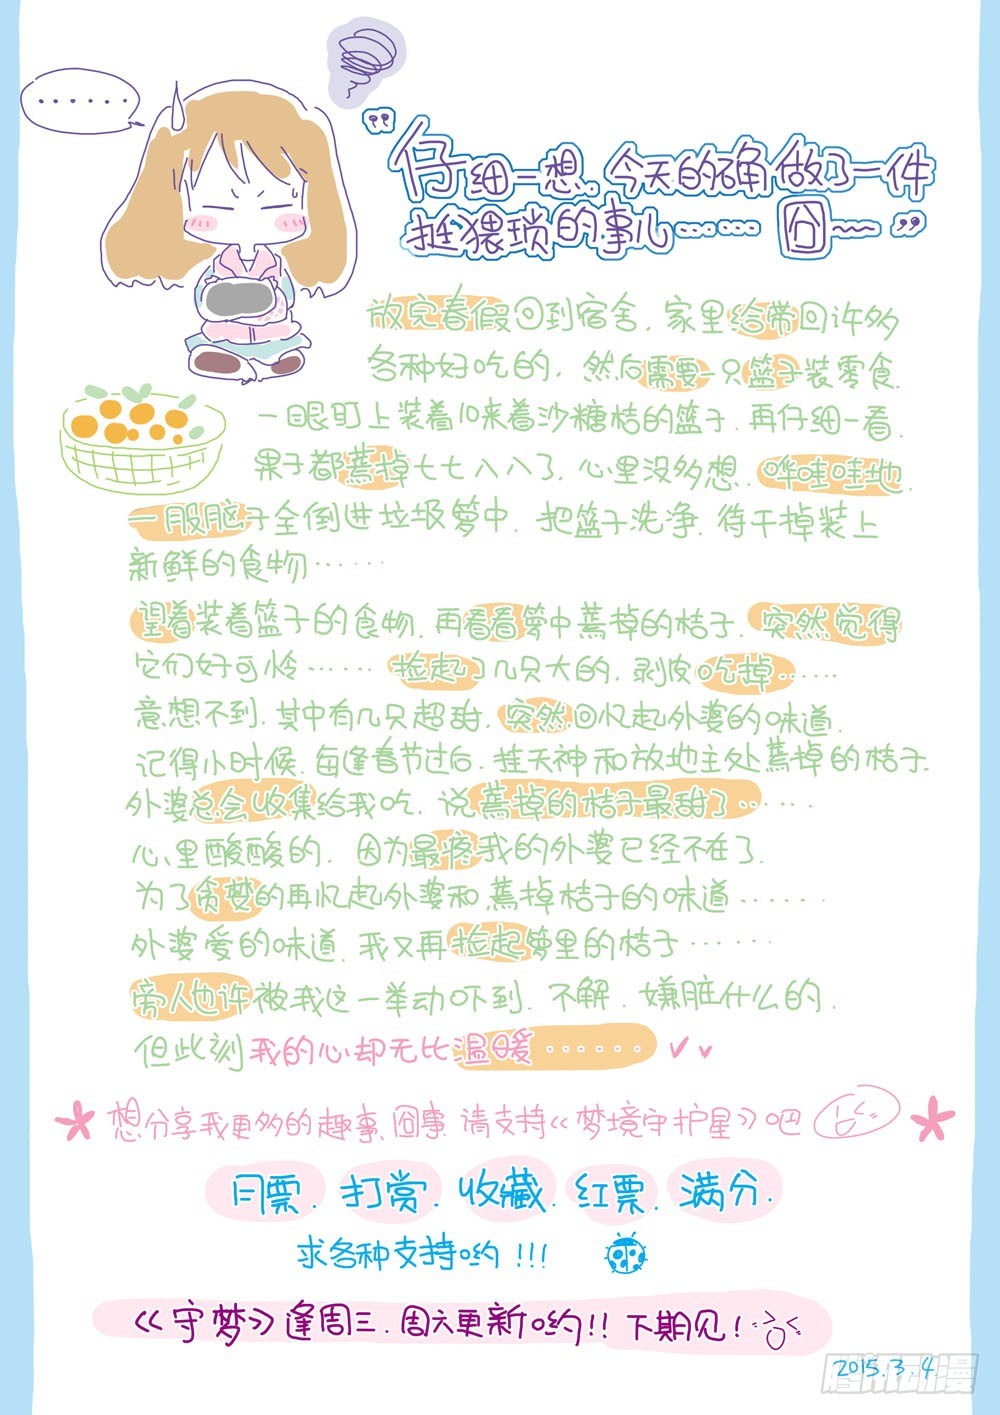 ......
“仔细一想。今天的确做了一件
挺猥琐的事儿…… 囧~~”
放完春假回到宿舍，家里给带回许多
各种好吃的，然后需要一只篮子装零食．
一眼盯上装着10来着沙糖桔的篮子．再仔细一看．
果子都蔫掉七七八八了．心里没多想．哗哇哇地．
一股脑子全倒进垃圾箩中．把篮子洗净．待干掉装上
新鲜的食物……
望着装着篮子的食物．再看看箩中蔫掉的桔子．突然觉得
它们好可怜……捡起了几只大的．剥皮吃掉……
意想不到．其中有几只超甜．突然回忆起外婆的味道．
记得小时候．每逢春节过后．挂天神和放地主处蔫掉的桔子．
外婆总会收集给我吃．说蔫掉的桔子最甜了……
心里酸酸的．因为最疼我的外婆已经不在了．
为了贪婪的再忆起外婆和蔫掉桔子的味道……
外婆爱的味道．我又再捡起箩里的桔子……
旁人也许被我这一举动吓到．不解．嫌脏什么的．
但此刻我的心却无比温暖……
想分享我更多的趣事、囧事．请支持《梦境守护星》吧
月票．打赏．收藏．红票．满分．
求各种支持哟!!!
《守梦》逢周三．周六更新哟!!下期见!
2015.3.4.
腾讯动漫